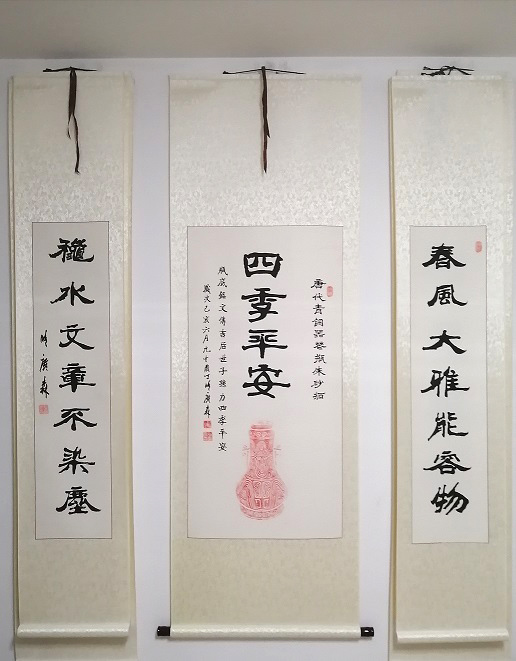 春風大雅能容物
唐代青銅器瓶朱砂拓
四季平安
瓶底銘文傳吉后世子孫乃四季平安
歲次己亥六月九十歲
龝水文章不染塵